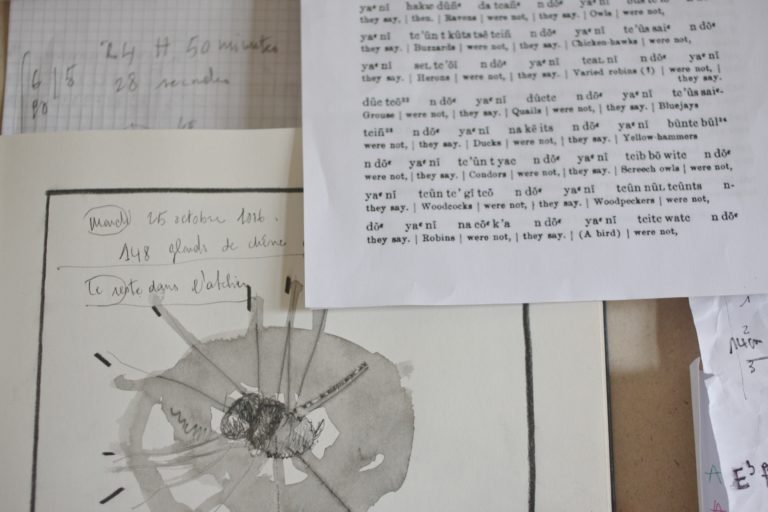 24 H 50 minutes
6 | 5 28 secondes
yaᵋnī hakw dûñᵋ da tcañᵋ n dōᵋ yaᵋnī
they say, | then. | Ravens | were not, | they say. | Owls | were not,
yaᵋnī tc'ûn t kûts tsē teiñ n dōᵋ yaᵋnī tc'ûs sai n dōᵋ
they say. | Buzzards | were not, | they say. | Chicken-hawks | were not,
yaᵋnī sel tc'ōī n dōᵋ yaᵋnī n dōᵋ yaᵋnī
they say. | Herons | were not, | they say. | Varied robins (?) | were not, | they say.
dûc tcō²² n dōᵋ yaᵋnī dûctc n dōᵋ yaᵋnī tc'ûs sai-
Grouse | were not, | they say. | Quails | were not, | they say. | Bluejays
teiñ²³ n dōᵋ yaᵋnī na kē its n dōᵋ yaᵋnī bûntc bûl²⁴
were not, | they say. | Ducks | were not, | they say. | Yellow-hammers
n dōᵋ yaᵋnī tc'ûn t yac n dōᵋ yaᵋnī tcib bō witc n dōᵋ
were not, | they say. | Condors | were not, | they say. | Screech owls | were not,
yaᵋnī tcûn tc'gī tcō n dōᵋ yaᵋnī tcûn nûL tcûnts n-
they say. | Woodcocks | were not, | they say. | Woodpeckers | were not,
dōᵋ yaᵋnī na cōᵋ k'a n dōᵋ yaᵋnī tcitc watc n dōᵋ
they say. | Robins | were not, | they say. | (A bird) | were not,
Mardi 25 octobre 2016.
148 glands de chêne
Le reste dans l'atelier
2
14cm
3
E³
A